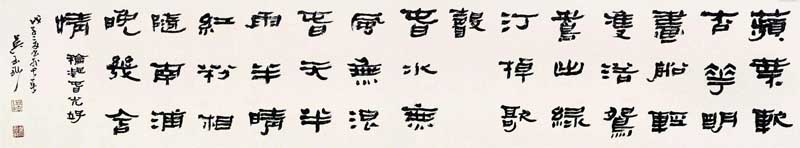 蘋葉軟
杏花明
畫船輕
雙浴鴛
鴦出綠
汀棹歌
聲
春水無
風無浪
春天半
雨半晴
紅粉相
隨南浦
晚幾含
情
龢凝春光好
戊子